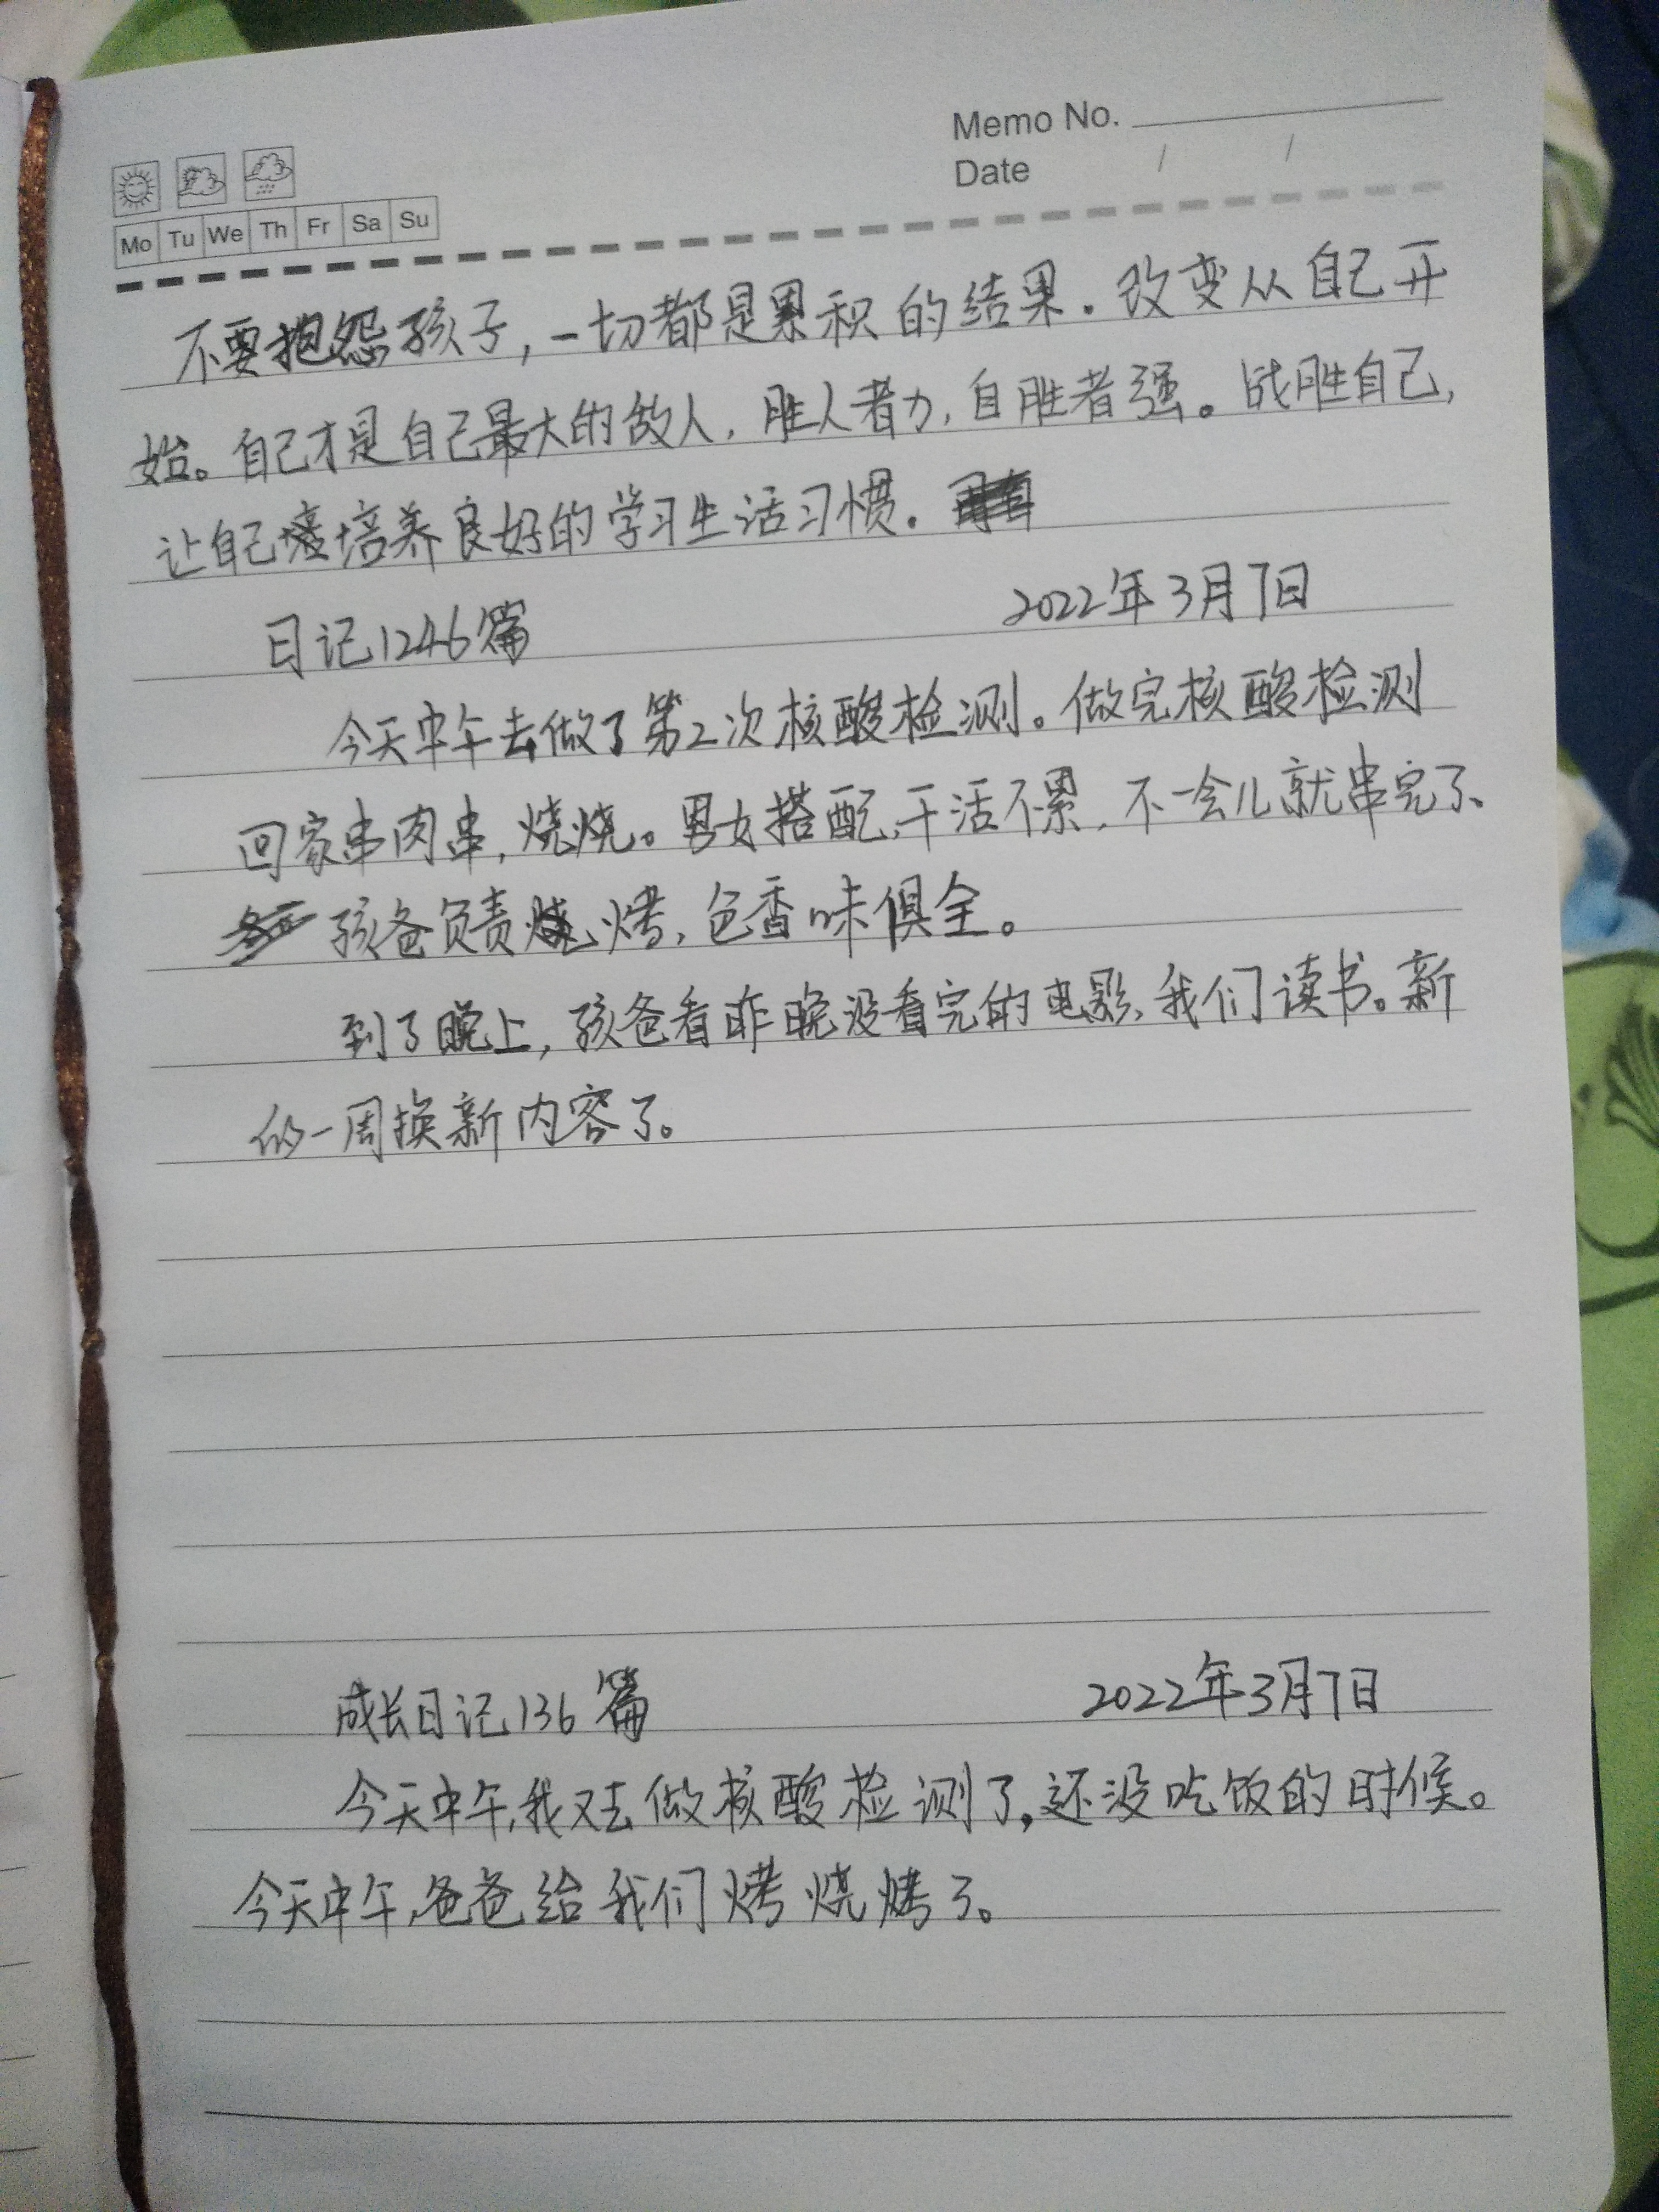 Memo No.
Date / /
Mo Tu We Th Fr Sa Su
不要抱怨孩子,一切都是累积的结果.改变从自己开
始。自己才是自己最大的敌人,胜人者力,自胜者强。战胜自己,
让自己培养良好的学习生活习惯.
日记1246篇 2022年3月7日
今天中午去做了第2次核酸检测。做完核酸检测
回家串肉串,烧烧。男女搭配,干活不累,不一会儿就串完了、
孩爸负责烧烤,色香味俱全。
到了晚上,孩爸看昨晚没看完的电影、我们读书。新
的一周换新内容了。
成长日记136篇 2022年3月7日
今天中午,我又去做核酸检测了,还没吃饭的时候。
今天中午,爸爸给我们烤烧烤了。